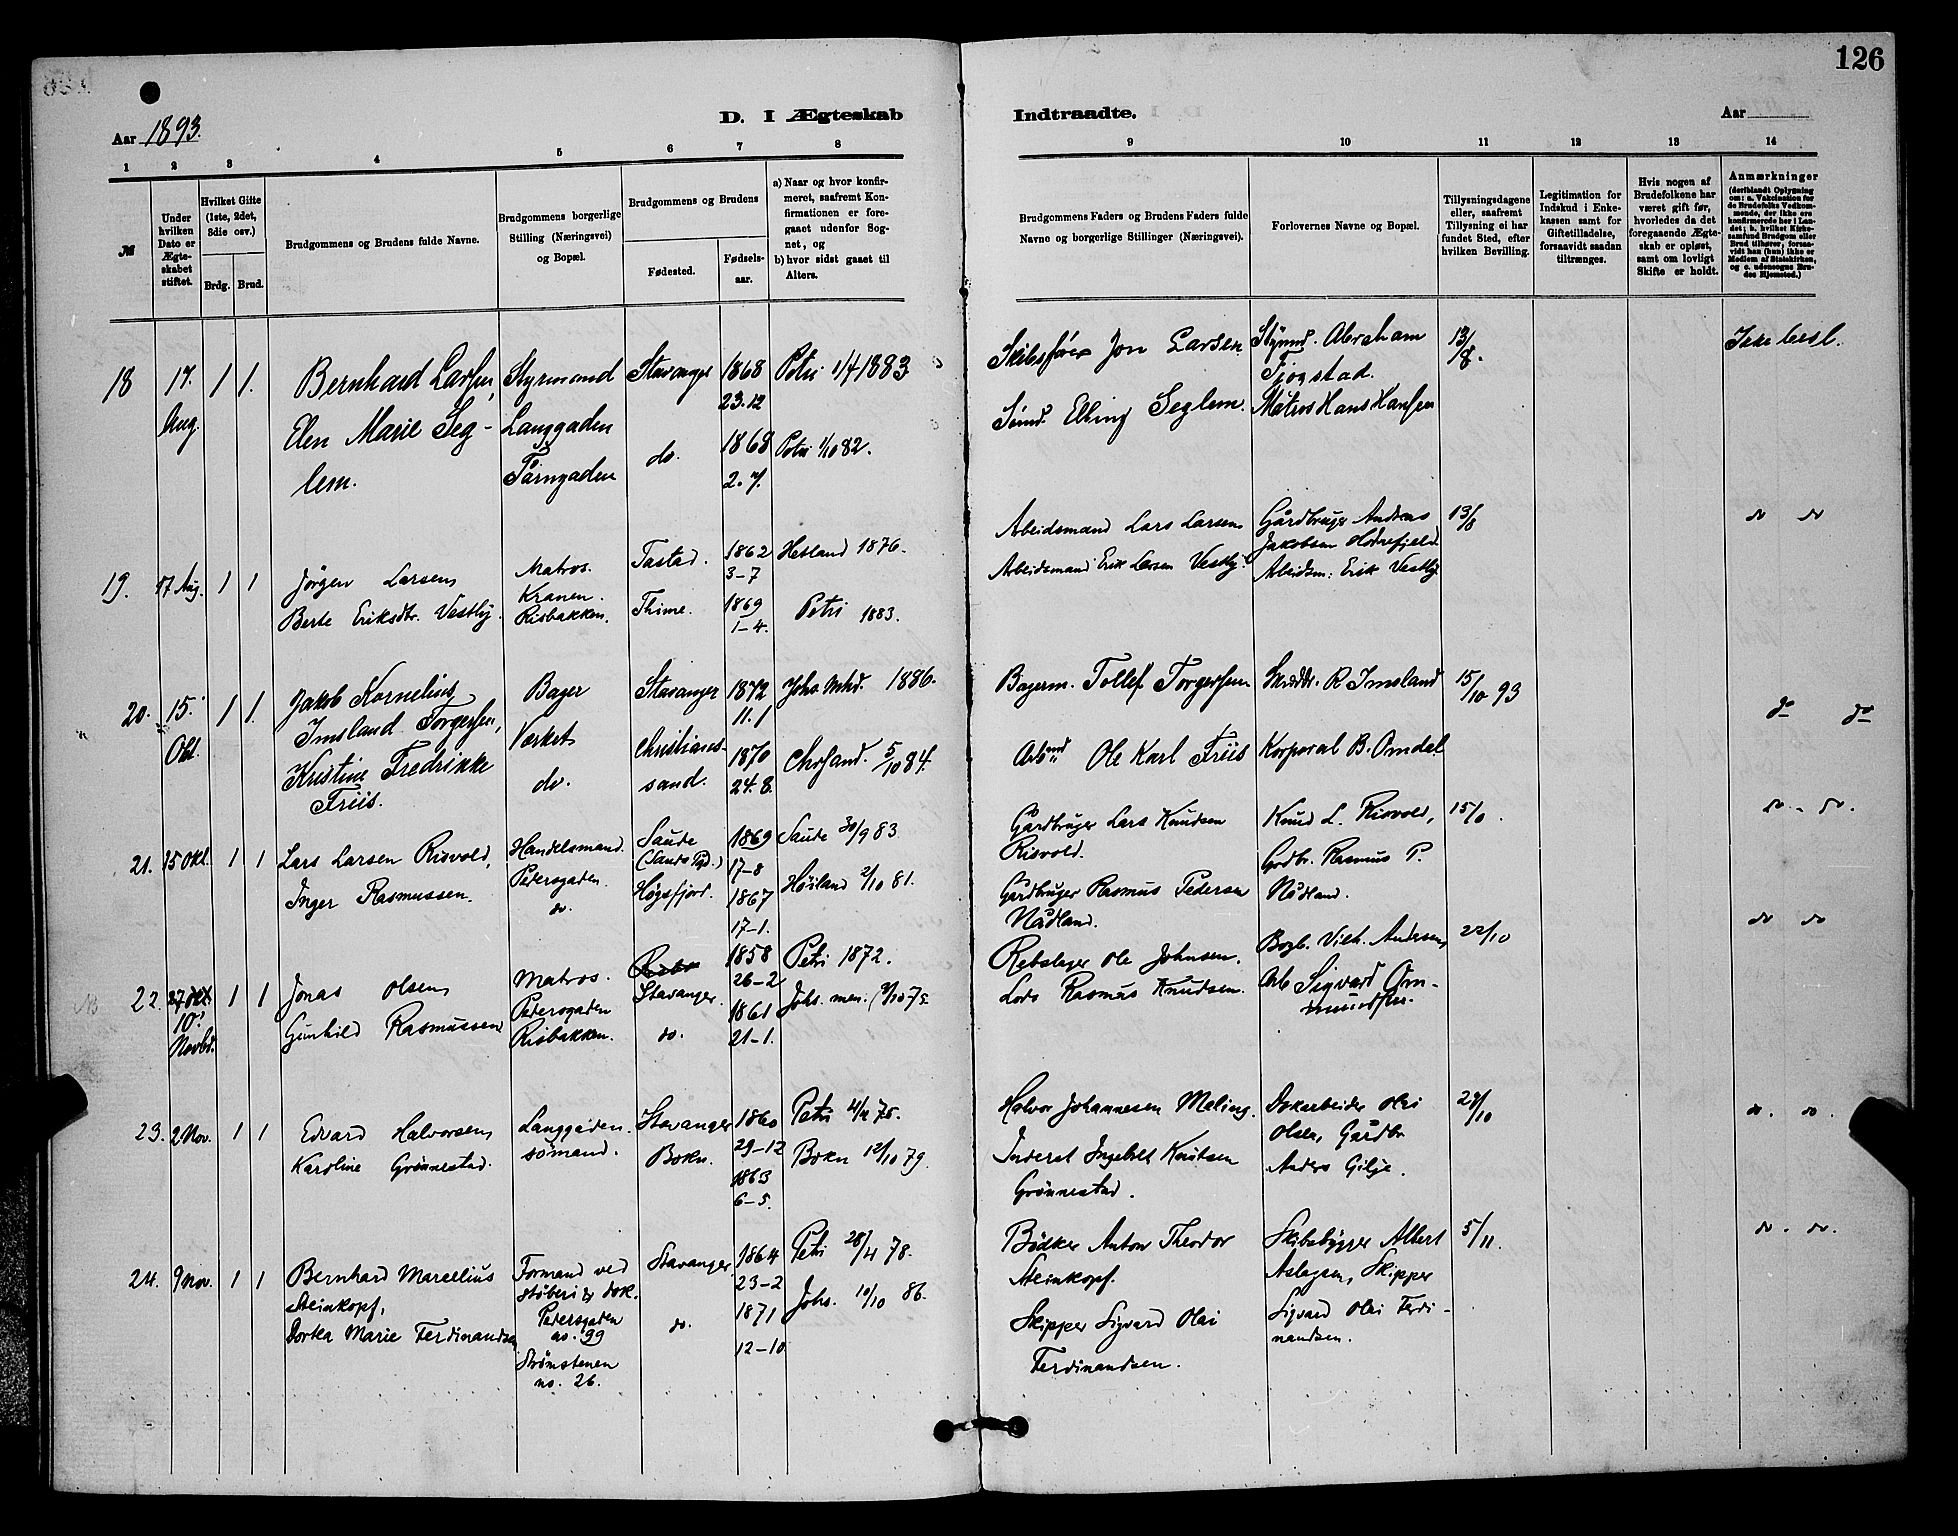 126
Aar 1893.
D. I Ægteskab Indtraadte.
Aar
1 2 3 4 5 6 7 8 9 10 11 12 13 14
№
Under hvilken Dato er Ægteskabet stiftet.
Hvilket Gifte (1ste, 2det, 3die osv.)
Brdg. Brud.
Brudgommens og Brudens fulde Navne.
Brudgommens borgerlige Stilling (Næringsvei) og Bopæl.
Brudgommens og Brudens
Fødested.
Fødselsaar.
a) Naar og hvor konfirmeret, saafremt Konfirmationen er foregaaet udenfor Sognet, og
b) hvor sidst gaaet til Alters.
Brudgommens Faders og Brudens Faders fulde Navne og borgerlige Stillinger (Næringsvei).
Forlovernes Navne og Bopæl.
Tillysningsdagene eller, saafremt Tillysning ei har fundet Sted, efter hvilken Bevilling.
Legitimation for Indskud i Enkekassen samt for Giftetilladelse, forsaavidt saadan tiltrænges.
Hvis nogen af Brudefolkene har været gift før, hvorledes da det foregaaende Ægteskab er opløst, samt om lovligt Skifte er holdt.
Anmærkninger
(deriblandt Oplysning om: a. Vakcination for de Brudefolks Vedkommende, der ikke ere konfirmerede her i Landet; b. hvilket Kirkesamfund Brudgom eller Brud tilhører, forsaavidt han (hun) ikke er Medlem af Statskirken, og c. udensogns Brudes Hjemsted.)
18 17. Aug. 1 1.
Bernhard Larsen,
Elen Marie Seg-
lem.
Styrmand
Langgaden
Tårngaden
Stavanger
do.
1868
23.12
1868
2.7.
Petri 1/4 1883
Petri 1/10 82.
Skibsfører Jon Larsen
Sømd. Elling Seglem.
Styrmd. Abraham
Fjogstad.
Matros Hans Hansen
13/8.
Ikke besl.
19. 17 Aug. 1 1
Jörgen Larsen
Berte Eriksdtr. Vestly.
Matros.
Kranen.
Risbakken.
Tastad.
Thime.
1862
3-7
1869
1-4.
Hetland 1876.
Petri 1883.
Arbeidsmand Lars Larsen
Arbeidsmand Erik Larsen Vestly.
Gårdbruger Andreas
Jakobsen
Arbeidsm. Erik Vestly
13/8
do do
20. 15. Okt. 1 1.
Jakob Kornelius
Imsland Torgersen,
Kristine Fredrikke
Friis.
Bager
Værket
do.
Stavanger
Christians-
sand.
1872
11.1
1870
24.8.
Johs Mkd. 1886.
Chrsand. 5/10 84.
Bagerm. Tollef Torgersen
Arbmd Ole Karl Friis
Skrædder. R Imsland
Korporal B. Omdal
15/10 93
do do
21. 15 Okt. 1 1
Lars Larsen Risvold,
Inger Rasmussen.
Handelsmand.
Pedersgaden.
do.
Saude
(Sauds Pgd.)
Høgsfjord.
1869
17-8
1867
17-1.
Saude 30/9 83
Høiland 2/10 81.
Gårdbruger Lars Knudsen
Risvold.
Gårdbruger Rasmus Pedersen
Nådland.
Knud L. Risvold,
Grdbr. Rasmus P.
Nådland.
15/10.
do - do.
NB 22. 27 Okt 10. Novbr. 1 1
Jonas Olsen
Gunhild Rasmussen
Matros.
Pedersgaden
Risbakken.
Stavanger.
do.
1858
26-2
1861
21-1.
Petri 1872.
Johs. men.
Rebslager Ole Johnsen.
Lods Rasmus Knudsen.
Bogb. Vilh. Andersen
Arb Sigvard Om-
mundsen.
22/10
do do
23. 2 Nov. 1 1
Edvard Halvorsen
Karoline Grönnestad.
Langgaden.
sömand.
Stavanger
Bokn.
1860
29-12
1863
6-5.
Petri 4/4 75.
Bokn 12/10 79.
Halvor Johannesen Meling.
Inderst Ingebret Knutsen
Grönnestad.
Dokarbeider Olai
Olsen, Gårdbr
Anders Gilje.
29/10
do. do.
24. 9 Nov. 1 1
Bernhard Marcelius
Steinkopf,
Dortea Marie Ferdinandsen
Formand ved
støberi & dok.
Pedersgaden
no. 99
Strømstenen
no. 26.
Stavanger
do.
1864
23-2
1871
12-10
Petri 28/4 78.
Johs. 10/10 86.
Bødker Anton Theodor
Steinkopf.
Skipper Sigvard Olai
Ferdinandsen.
Skibsbygger Albert
Aslagsen, Skipper
Sigvard Olai Ferdi-
nandsen.
5/11.
do. do.